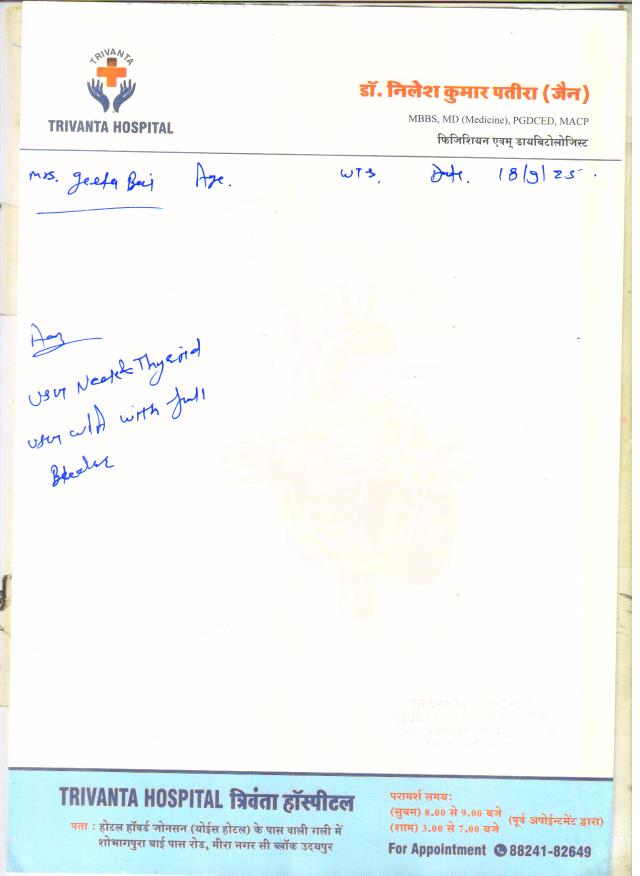 TRIVANTA
TRIVANTA HOSPITAL
डॉ. निलेश कुमार पतीरा (जैन)
MBBS, MD (Medicine), PGDCED, MACP
फिजिशियन एवम् डायबिटोलोजिस्ट
Mrs. Geeta Bai Age. WT3. Date. 18/9/25.
Adv
USG Neck & Thyroid
USG W/A with full
Bladder
TRIVANTA MEDICAL &
TRIVANTA HOSPITAL त्रिवंता हॉस्पीटल
पता : होटल हॉवर्ड जोनसन (योईस होटल) के पास वाली गली में
शोभागपुरा बाई पास रोड, मीरा नगर सी ब्लॉक उदयपुर
परामर्श समय:
(सुबम) 8.00 से 9.00 बजे
(शाम) 3.00 से 7.00 बजे
(पूर्व अपोईन्टमेंट द्वारा)
For Appointment 88241-82649